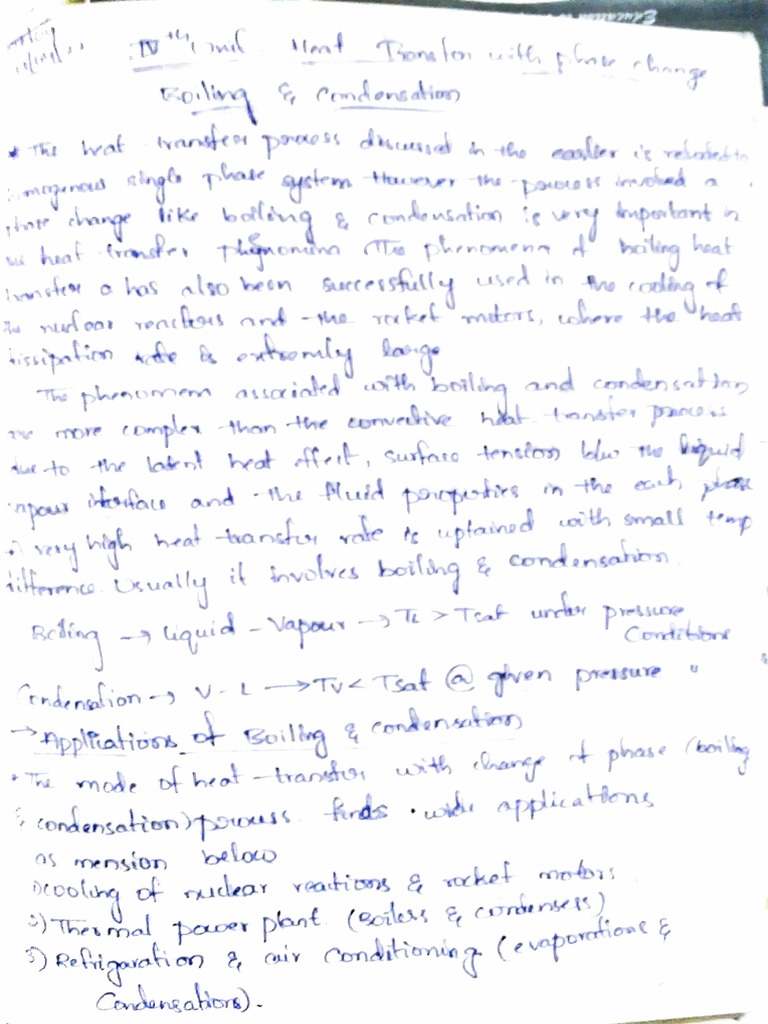 IVth Unit. Heat Transfer with phase change
Boiling & Condensation
* The heat transfer process discussed in the earlier is related to
single phase system However the process involved a
phase change like boiling & condensation is very important in
heat transfer The phenomena of boiling heat
transfer a has also been successfully used in the cooling of
the nuclear reactors and the rocket motors, where the heat
dissipation rate is extremly large
The phenomem associated with boiling and condensation
are more complex than the convective heat transfer process
due to the latent heat effect, surface tension b/w the liquid
vapour interface and the fluid properties in the each phase
A very high heat transfer rate is uptained with small temp
difference. Usually it involves boiling & condensation.
Boiling → Liquid - Vapour → TL > Tsat under pressure
Conditions
Condensation → V - L → TV < Tsat @ given pressure "
→ Applications of Boiling & condensation
* The mode of heat transfer with change of phase (boiling
& condensation) process finds wide applications
as mension below
1) cooling of nuclear reactions & rocket motors
2) Thermal power plant (Boilers & condensers)
3) Refrigaration & air conditioning (evaporations &
Condensations).